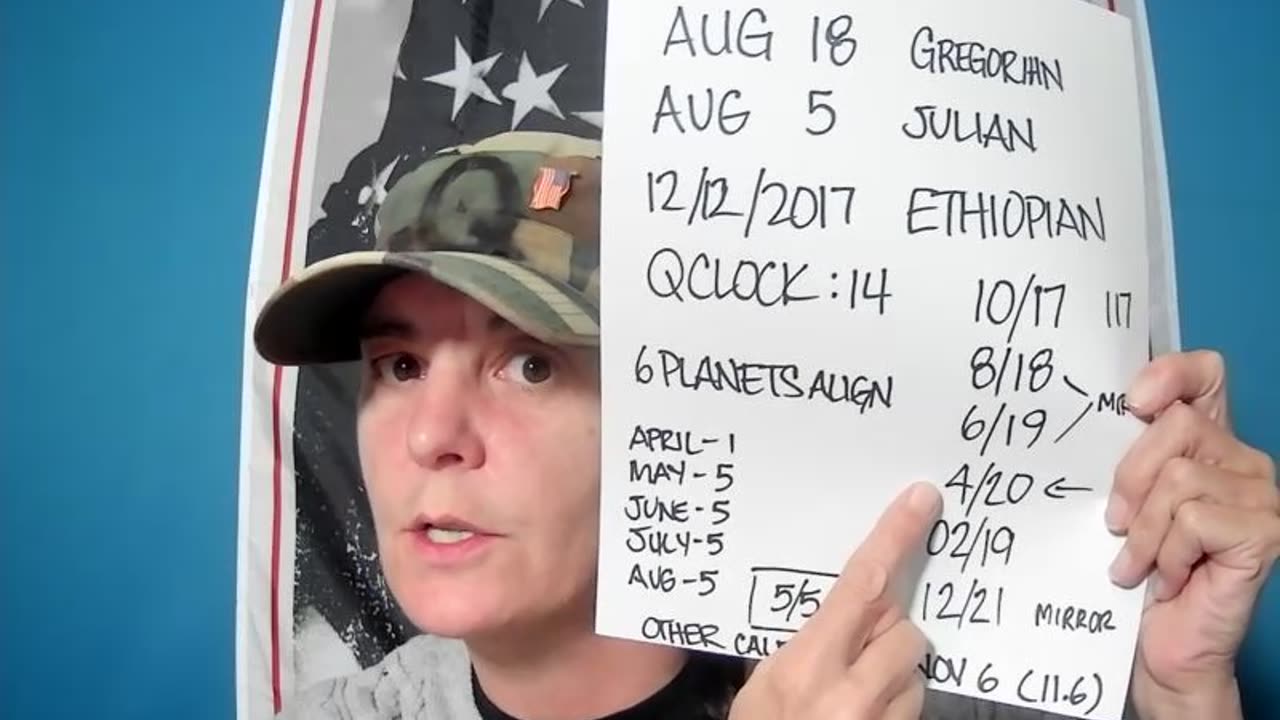 AUG 18 GREGORIAN
AUG 5 JULIAN
12/12/2017 ETHIOPIAN
QCLOCK: 14
10/17 117
8/18
6 PLANETS ALIGN
6/19
4/20 ←
02/19
12/21 MIRROR
APRIL - 1
MAY - 5
JUNE - 5
JULY - 5
AUG - 5
5/5
OTHER
NOV 6 (11.6)